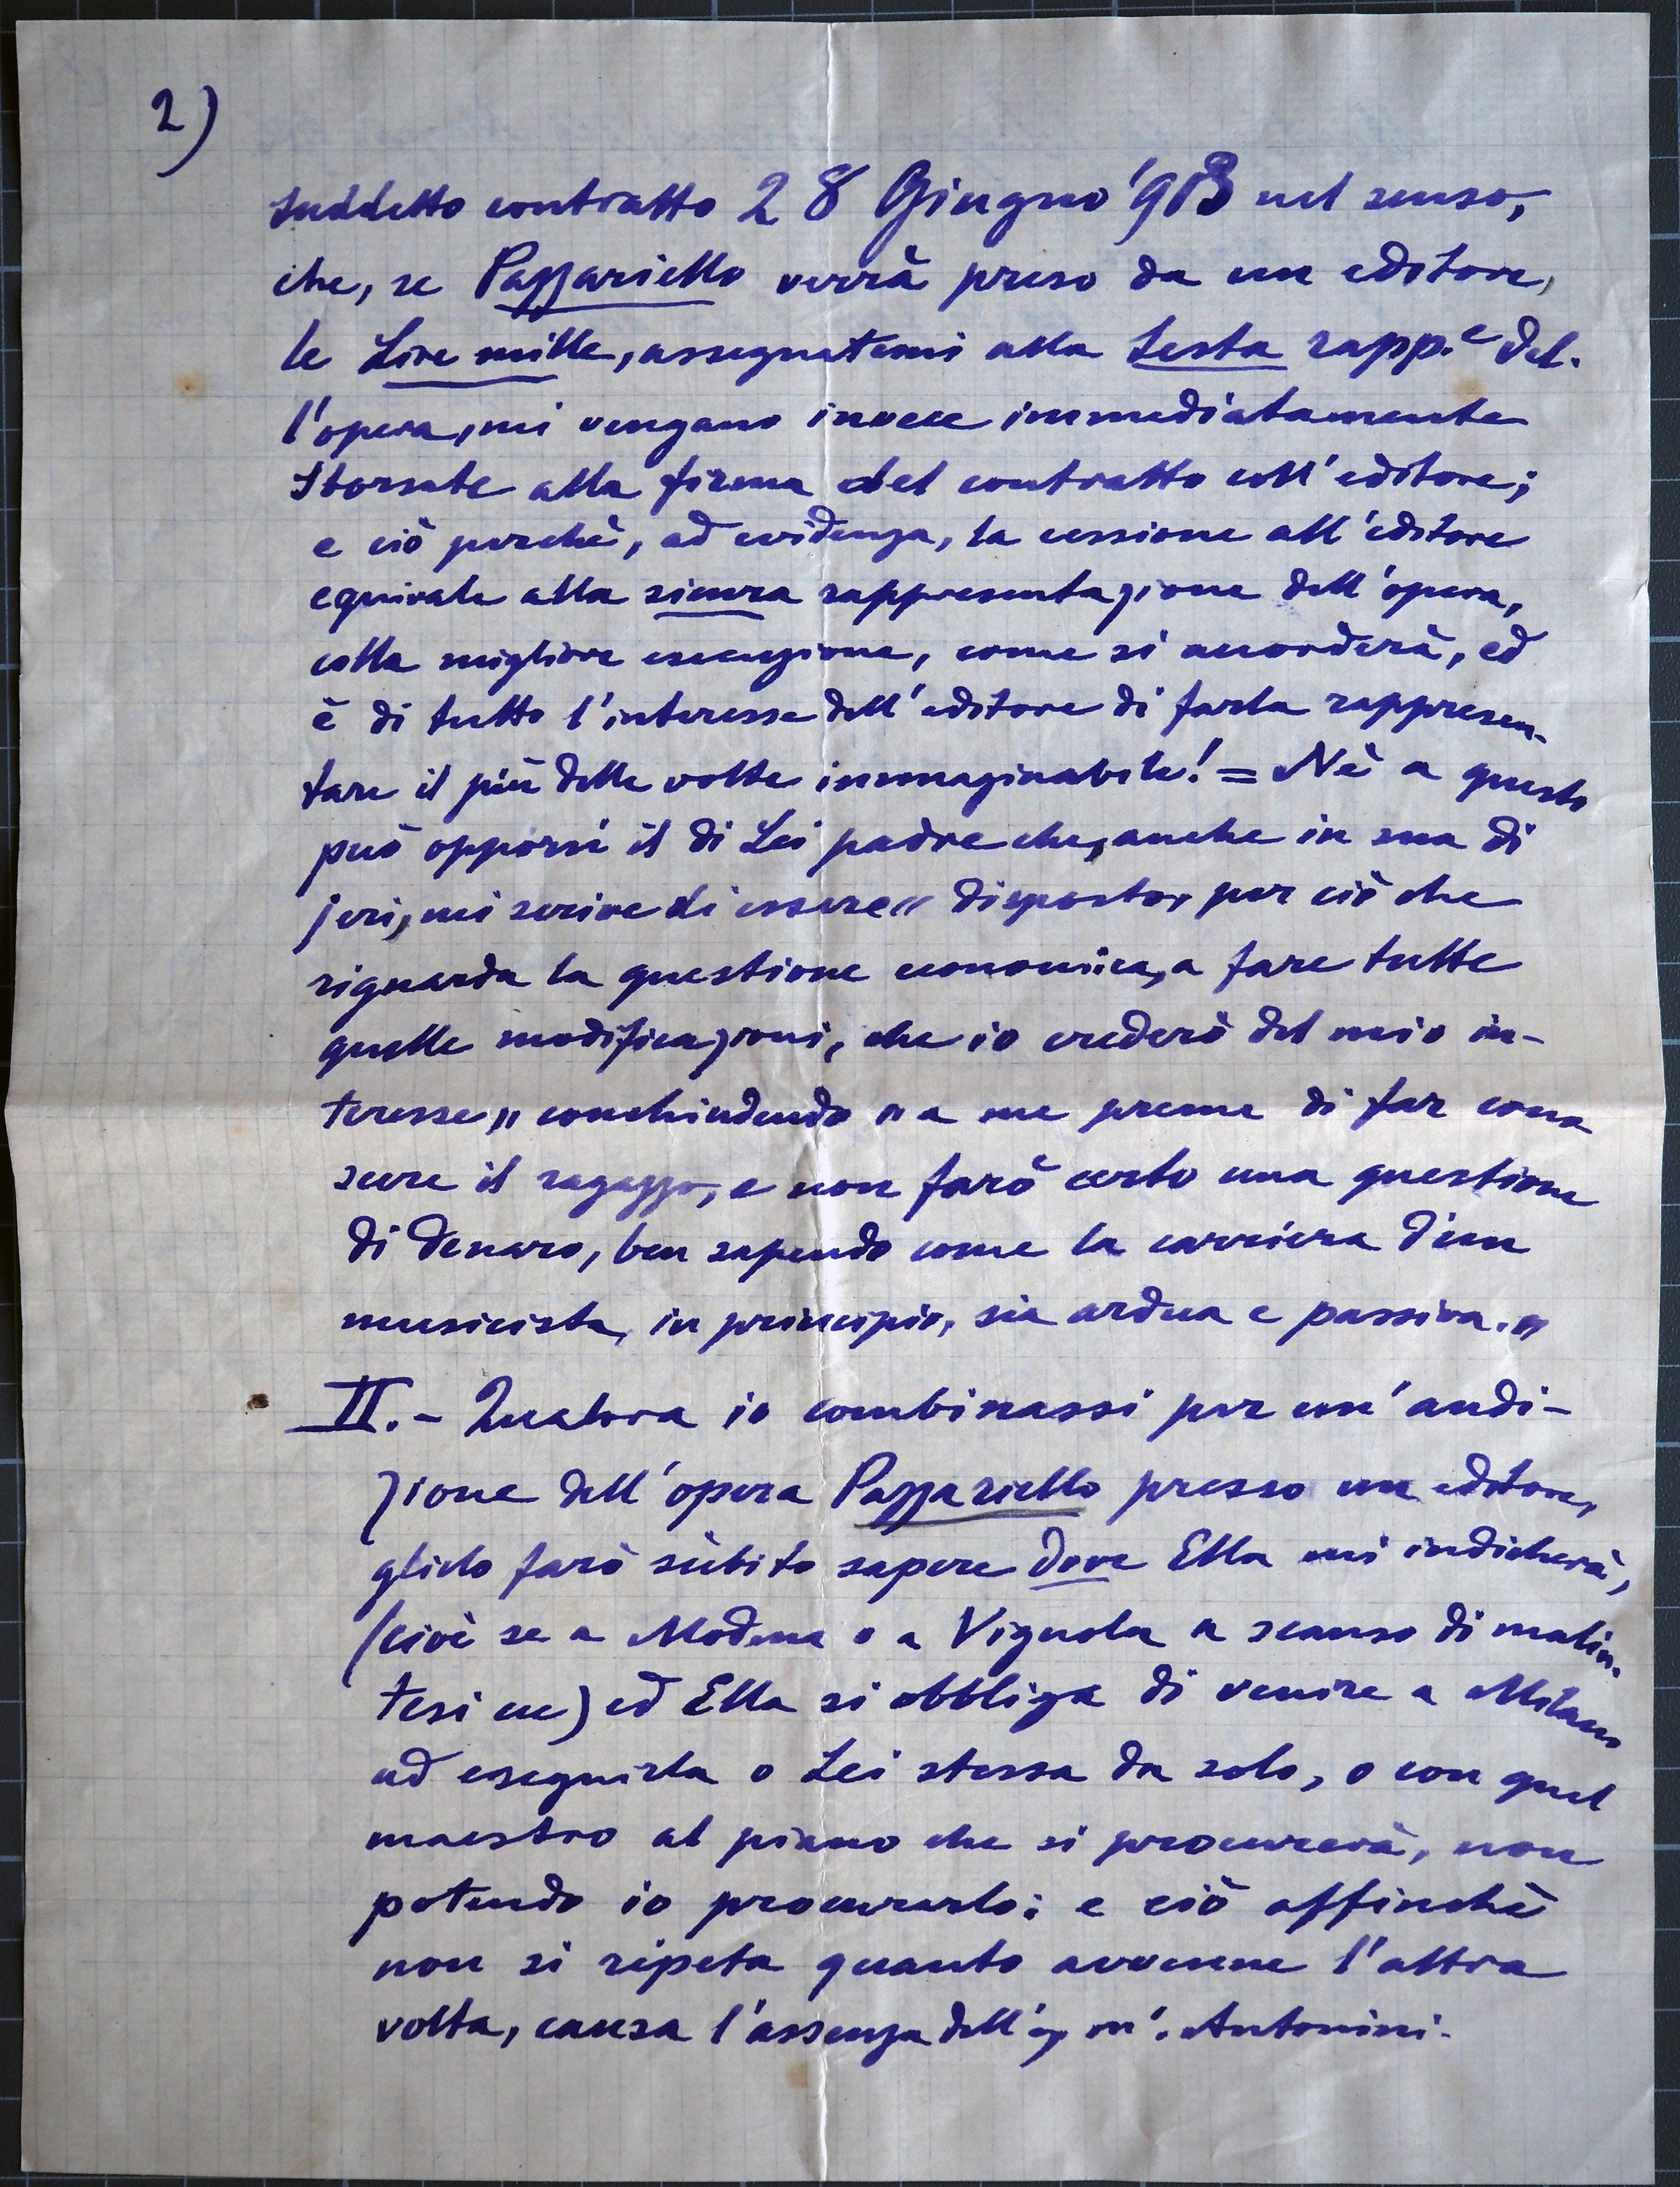 2)
suddetto contratto 28 Giugno '913 nel senso,
che, se Pazzariello verrà preso da un editore,
le Lire mille, assegnatemi alla sesta rapp.e del-
l'opera, mi vengano invece immediatamente
sborsate alla firma del contratto coll'editore;
e ciò perchè, ad evidenza, la cessione all'editore
equivale alla sicura rappresentazione dell'opera,
colla migliore esecuzione, come si accorderà, ed
è di tutto l'interesse dell'editore di farla rappresen-
tare il più delle volte immaginabile! = Nè a questo
può opporsi il di Lei padre che, anche in sua di
jeri, mi scrive di essere " disposto, per ciò che
riguarda la questione economica, a fare tutte
quelle modificazioni, che io crederò del mio in-
teresse " conchiudendo " a me preme di far cono
scere il ragazzo, e non farò certo una questione
di denaro, ben sapendo come la carriera d'un
musicista, in principio, sia ardua e passiva. "
II. - Qualora io combinassi per un'audi-
zione dell'opera Pazzariello presso un editore,
glielo farò sùbito sapere dove Ella mi indicherà,
(cioè se a Modena o a Vignola a scanso di malin-
tesi ecc) ed Ella si obbliga di venire a Milano
ad eseguirla o Lei stessa da solo, o con quel
maestro al piano che si procurerà, non
potendo io procurarlo; e ciò affinchè
non si ripeta quanto avvenne l'altra
volta, causa l'assenza dell' m'. Antonini.